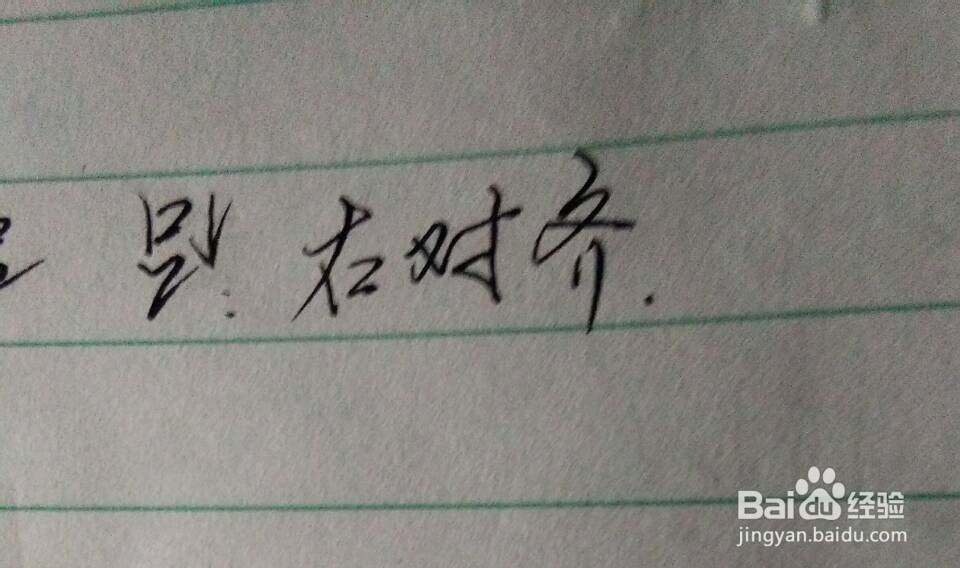 别. 右对齐.
Baidu 经验
jingyan.baidu.com